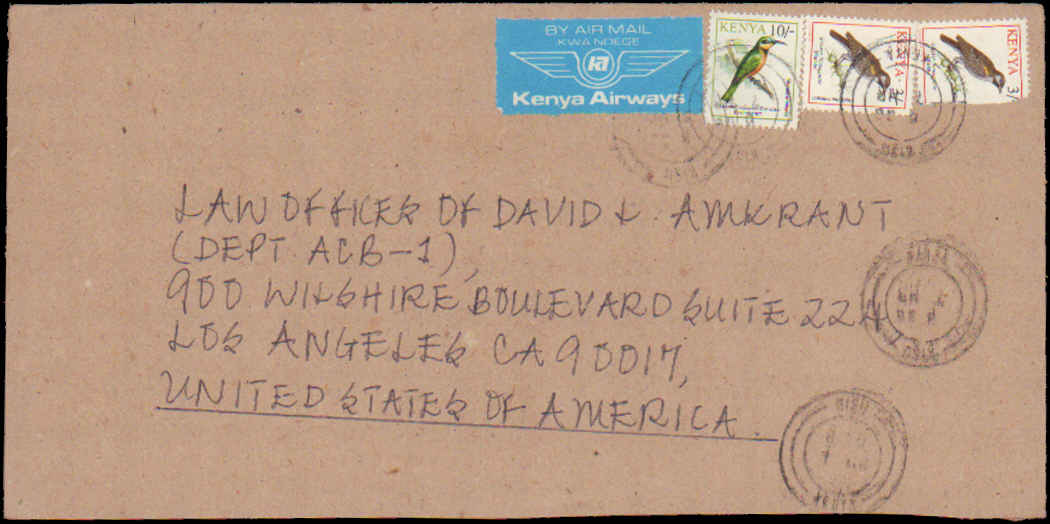 BY AIR MAIL
KWA NDEGE
Kenya Airways
KENYA 10/-
KENYA
KENYA 3/-
LAW OFFICES OF DAVID L. AMKRANT
(DEPT ACB-1),
900 WILSHIRE BOULEVARD SUITE 224
LOS ANGELES CA 90017,
UNITED STATES OF AMERICA.